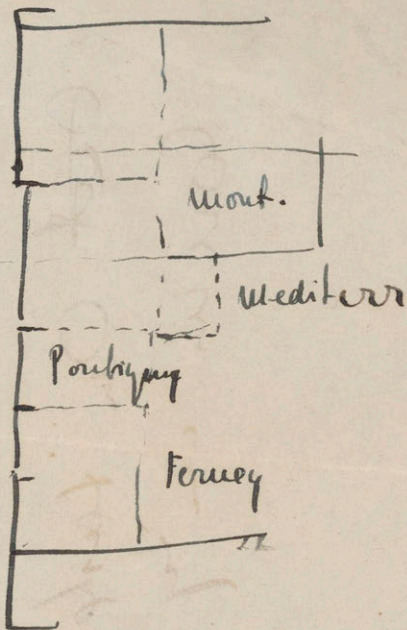 Mont.
Mediterr
Pontigny
Ferney